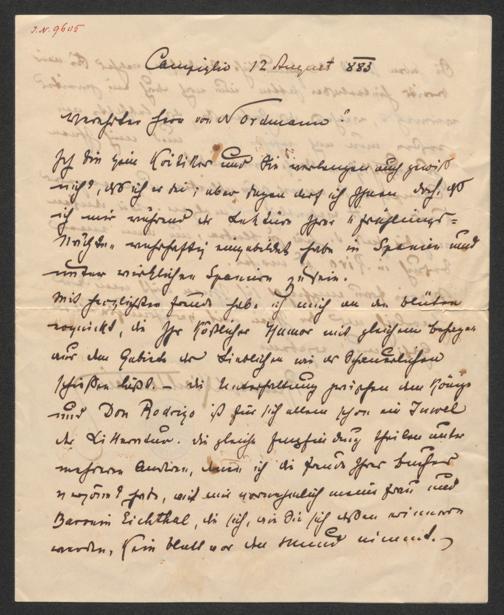 J.N. 9605
Campiglio 12 August 883
Verehrter Herr von Nordmann!
Ich bin kein Kritiker und Sie verlangen auch gewiß
nicht, daß ich es sei; aber sagen darf ich Ihnen doch, daß
ich mir während der Lektüre Ihrer "Frühlings-
Nächte" wahrhaftig eingebildet habe in Spanien und
unter wirklichen Spaniern zu sein.
Mit herzlichster Freude habe ich mich an den Blüten
erquickt, die Ihr köstlicher Humor mit gleichem Behagen
aus dem Gebiete des Lieblichen wie des Schauerlichen
schießen läßt. – die Unterhaltung zwischen dem König
und Don Rodrigo ist für sich allein schon ein Juwel
der Litteratur. die gleiche Empfindung theilen unter
mehreren Andern, denen ich die Freude Ihrer Bücher
habe, mit mir vornehmlich meine Frau und
Baronin Eichthal, die sich, wie Sie sich dessen erinnern
werden, kein Blatt vor den Mund nimmt.